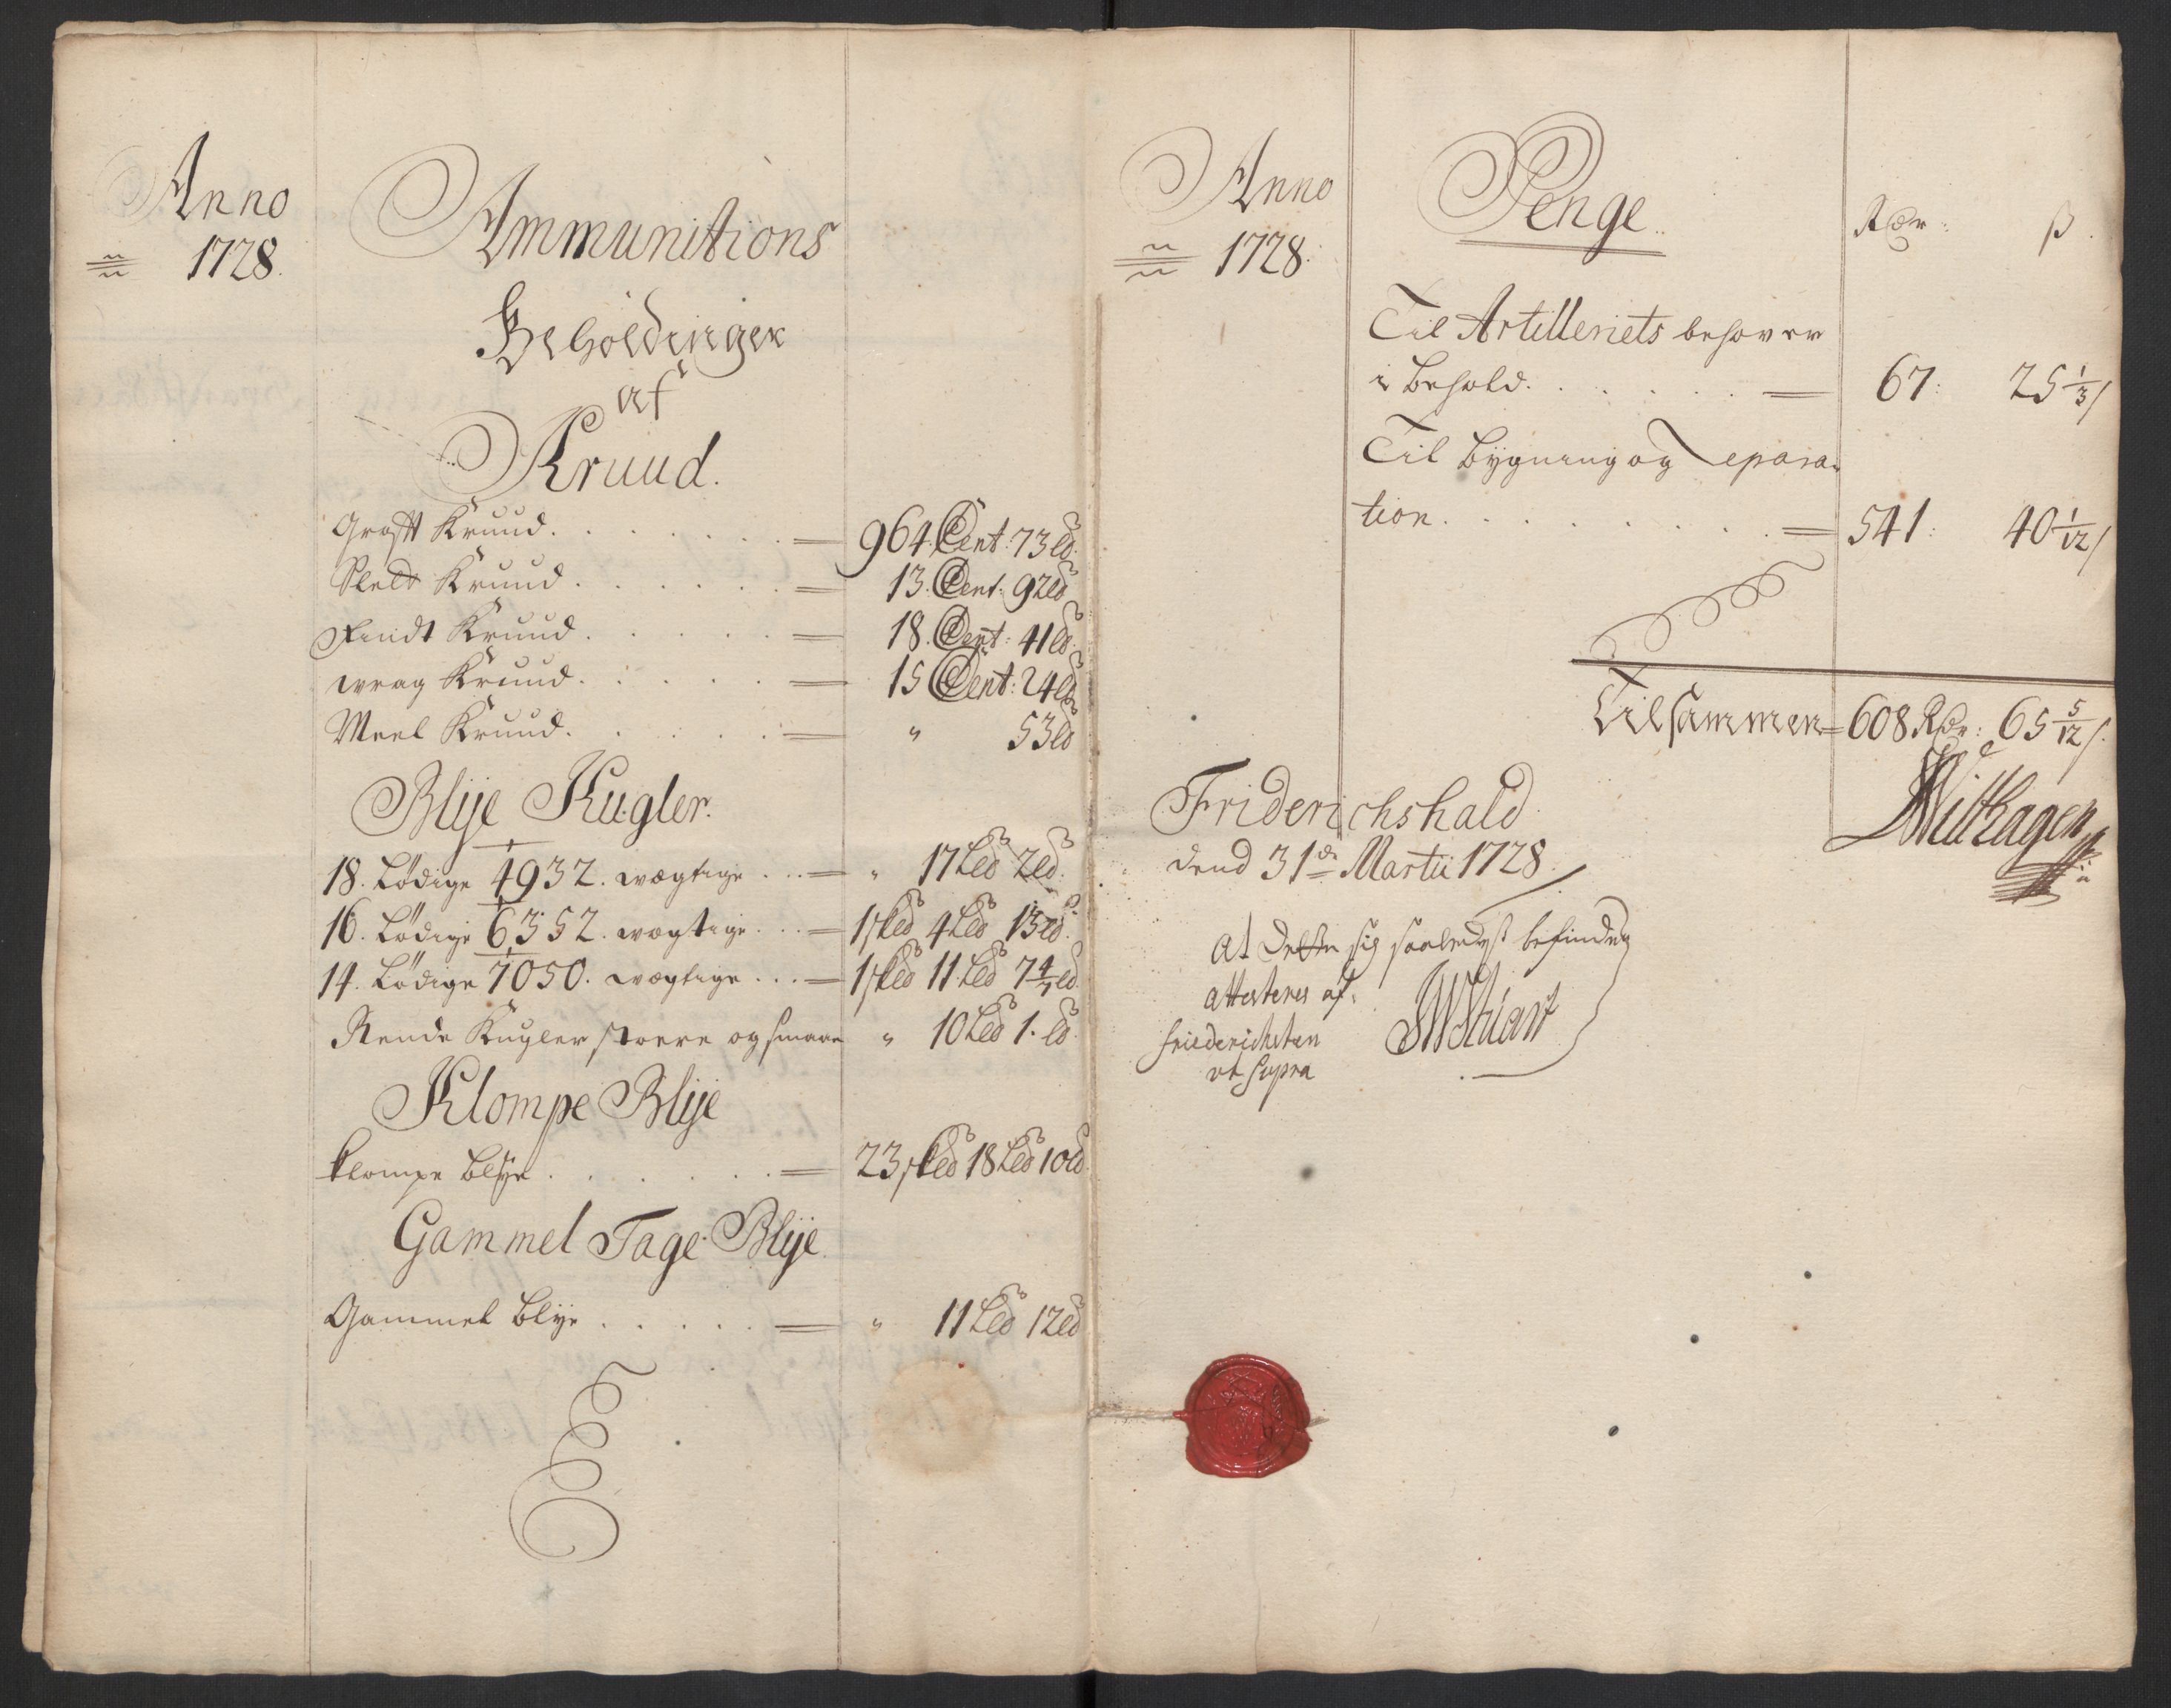 Anno
1728.
Ammunitions
Beholdinger
af
Kruud.
Groft Kruud. . . . . . . = 964. Cent: 73 ℔.
Slett Kruud. . . . . . = 13. Cent. 92 ℔
Findt Kruud. . . . . = 18. Cent: 41 ℔.
wrag Kruud. . . . . = 15 Cent: 24 ℔
Meel Kruud. . . . . = " 53 ℔
Blÿe Kugler.
18. Lødige 4932. wægtige . . . = " 17 L℔ 2 ℔.
16. Lødige 6352. wægtige . . . = 1 sk℔ 4 L℔ 13 ℔.
14. Lødige 7050. wægtige . . . = 1 sk℔ 11 L℔ 7 4/7 ℔.
Rende Kugler stoere og smaae " 10 L℔ 1. ℔.
Klompe Blÿe
klompe blÿe . . . . . . = 23 sk℔ 18 L℔ 10 ℔.
Gammel Tage Blÿe.
Gammel blÿe . . . . . = " 11 L℔ 12 ℔
Anno
1728.
Penge.
Rdr: ß.
Til Artilleriets behover
i behold. . . . . . = 67: 25 1/3 /
Til bÿgning og Repara-
tion. . . . . . . = 541: 40 1/12 /
Tilsammen = 608 Rdr: 65 5/12 /.
Friderichshald
dend 31de Martii 1728.
Withagen
At dette sig saaledeß befinder
attesteres af.
Friederichsten
ut supra
Stuart